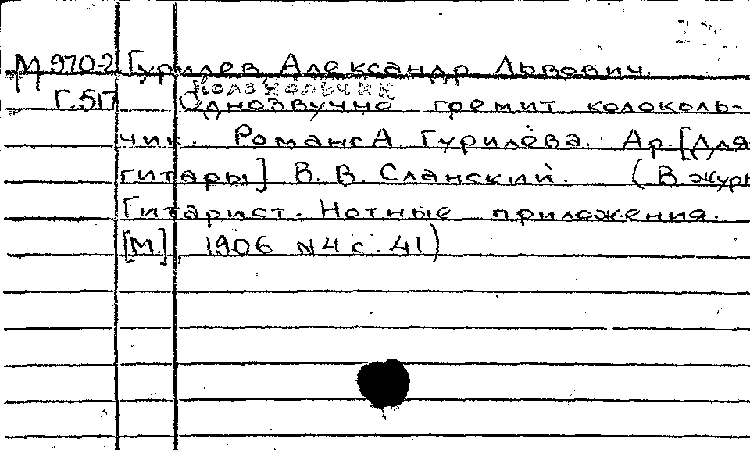 М 970-2 Гурилев Александр Львович.
Колокольчик
Г.517 Однозвучно гремит колоколь-
чик. Романс А Гурилёва. Ар. [Для
гитары] В. В. Сланский. (В журн
Гитарист. Нотные приложения.
[М] 1906 N4 с. 41)